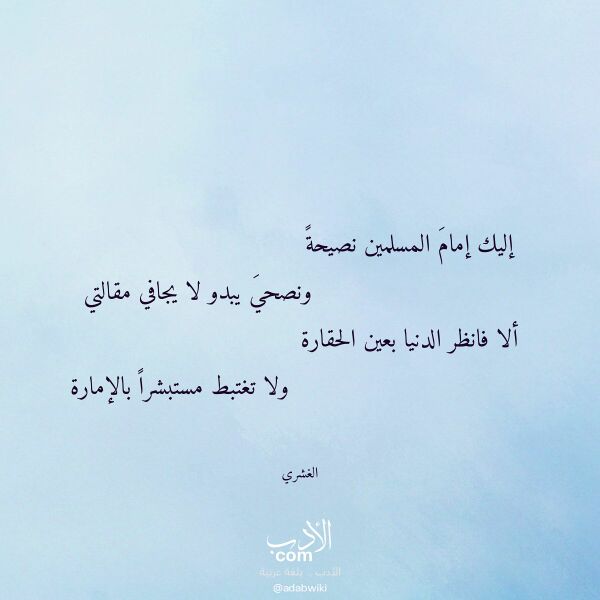 إليك إمامَ المسلمين نصيحةً
ونصحيَ يبدو لا يجافي مقالتي
ألا فانظر الدنيا بعين الحقارة
ولا تغتبط مستبشراً بالإمارة
الغشري
الأدب
com
الأدب .. بلغة عربية
@adabwiki